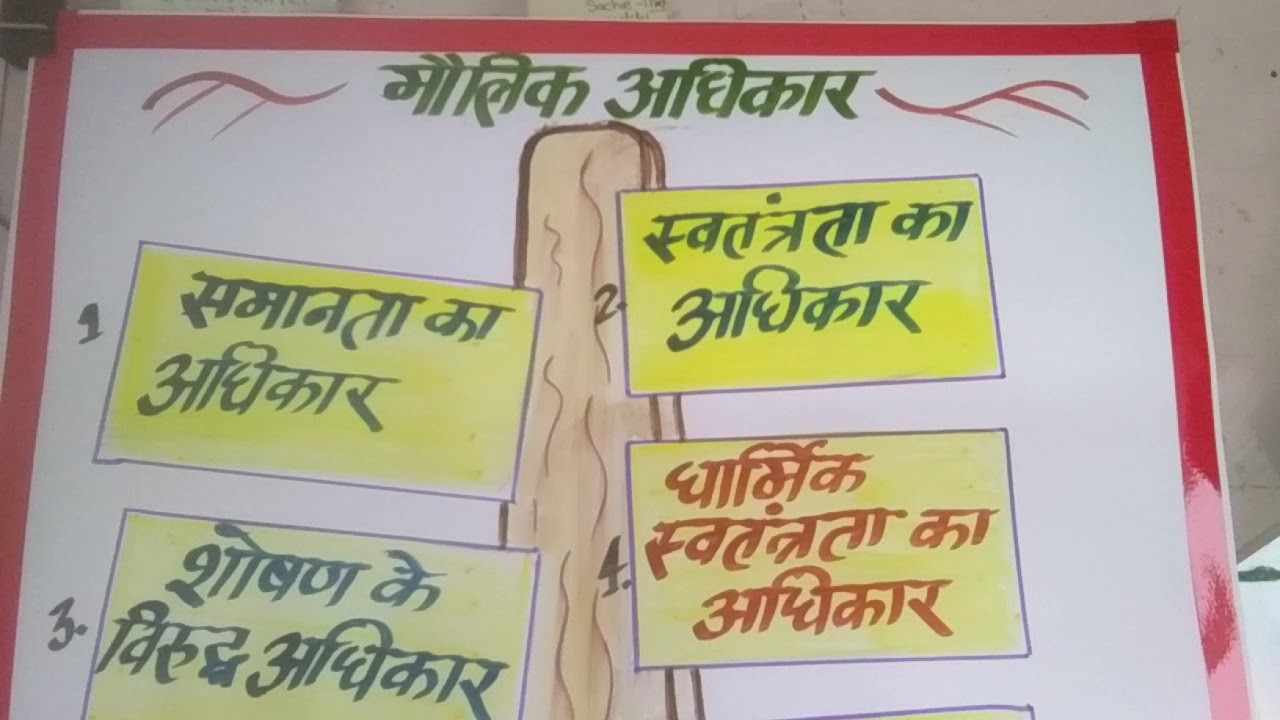 Sache - The
मौलिक अधिकार
1
समानता का
अधिकार
2.
स्वतंत्रता का
अधिकार
3.
शोषण के
विरुद्ध अधिकार
4.
धार्मिक
स्वतंत्रता का
अधिकार